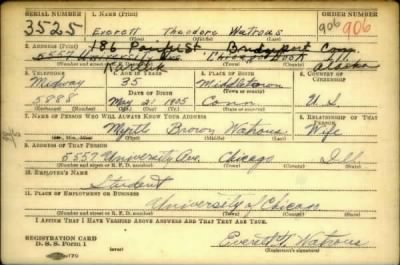 SERIAL NUMBER 1. NAME (Print) ORDER NUMBER
3525 Everett Theodore Watrous 906 906
(First) (Middle) (Last)
2. ADDRESS (Print)
186 St Bridgeport Conn.
5557 University Ave. Chicago Cook Ill.
Alaska
(Number and street or R. F. D. number) (Town) (County) (State)
3. TELEPHONE 4. AGE IN YEARS 5. PLACE OF BIRTH 6. COUNTRY OF CITIZENSHIP
Midway 35 Middletown
5888 DATE OF BIRTH Conn U.S.
May 21 1905
(Exchange) (Number) (Mo.) (Day) (Yr.) (State or country)
7. NAME OF PERSON WHO WILL ALWAYS KNOW YOUR ADDRESS 8. RELATIONSHIP OF THAT PERSON
Myrtle Brown Watrous Wife
(Mr., Mrs., Miss) (First) (Middle) (Last)
9. ADDRESS OF THAT PERSON
5557 University Ave. Chicago Ill
(Number and street or R. F. D. number) (Town) (County) (State)
10. EMPLOYER'S NAME
Student
11. PLACE OF EMPLOYMENT OR BUSINESS
University of Chicago
(Number and street or R. F. D. number) (Town) (County) (State)
I AFFIRM THAT I HAVE VERIFIED ABOVE ANSWERS AND THAT THEY ARE TRUE.
REGISTRATION CARD
D. S. S. Form 1 (over) Everett T. Watrous
(Registrant's signature)